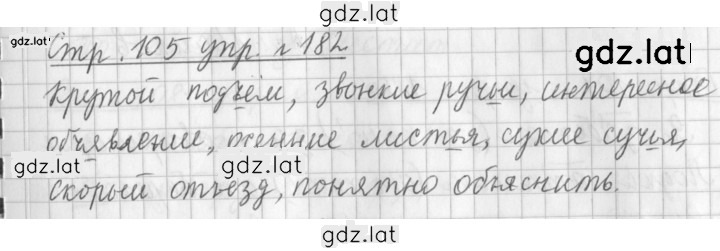 gdz.lat
gdz.lat
Стр. 105 упр. № 182
gdz.lat
крутой подъём, звонкие ручьи, интересное
объявление, осенние листья, сухие сучья,
gdz.lat
gdz.lat
скорый отъезд, понятно объяснить.
gdz.lat
gdz.lat